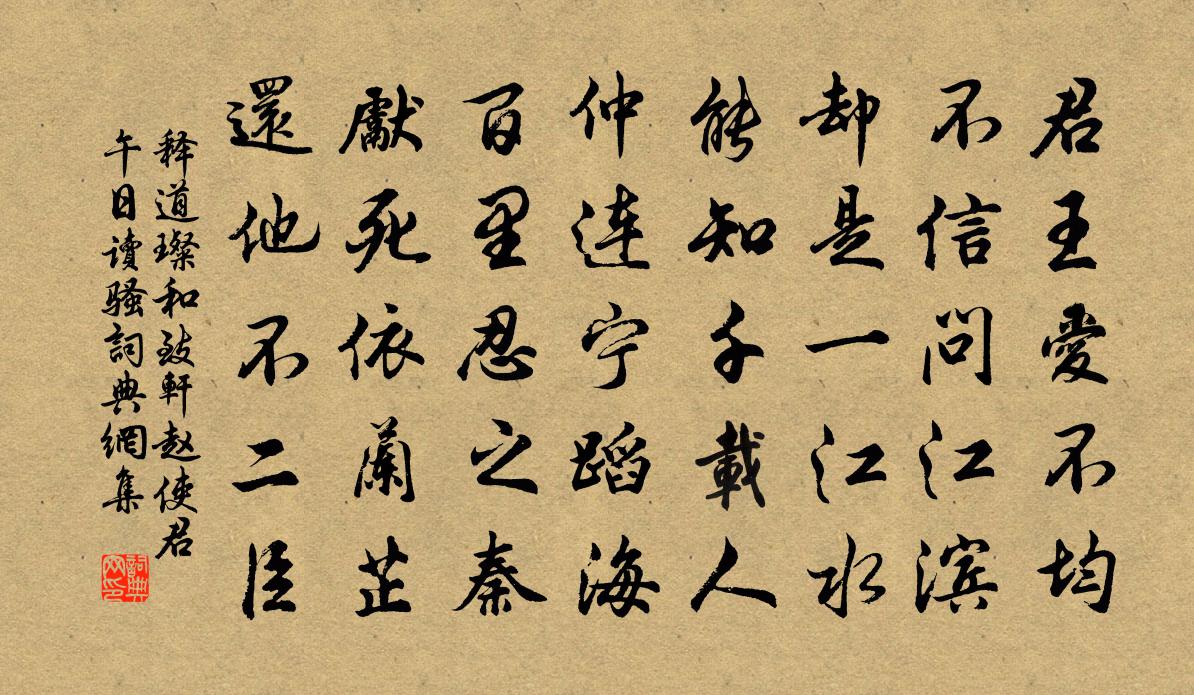 君王愛不均
不信問江滨
却是一江水
能知千載人
仲连宁蹈海
百里忍之秦
獻死依蘭芷
還他不二臣
释道璨和致軒赵使君
午日读骚詞典網集
詞典网印